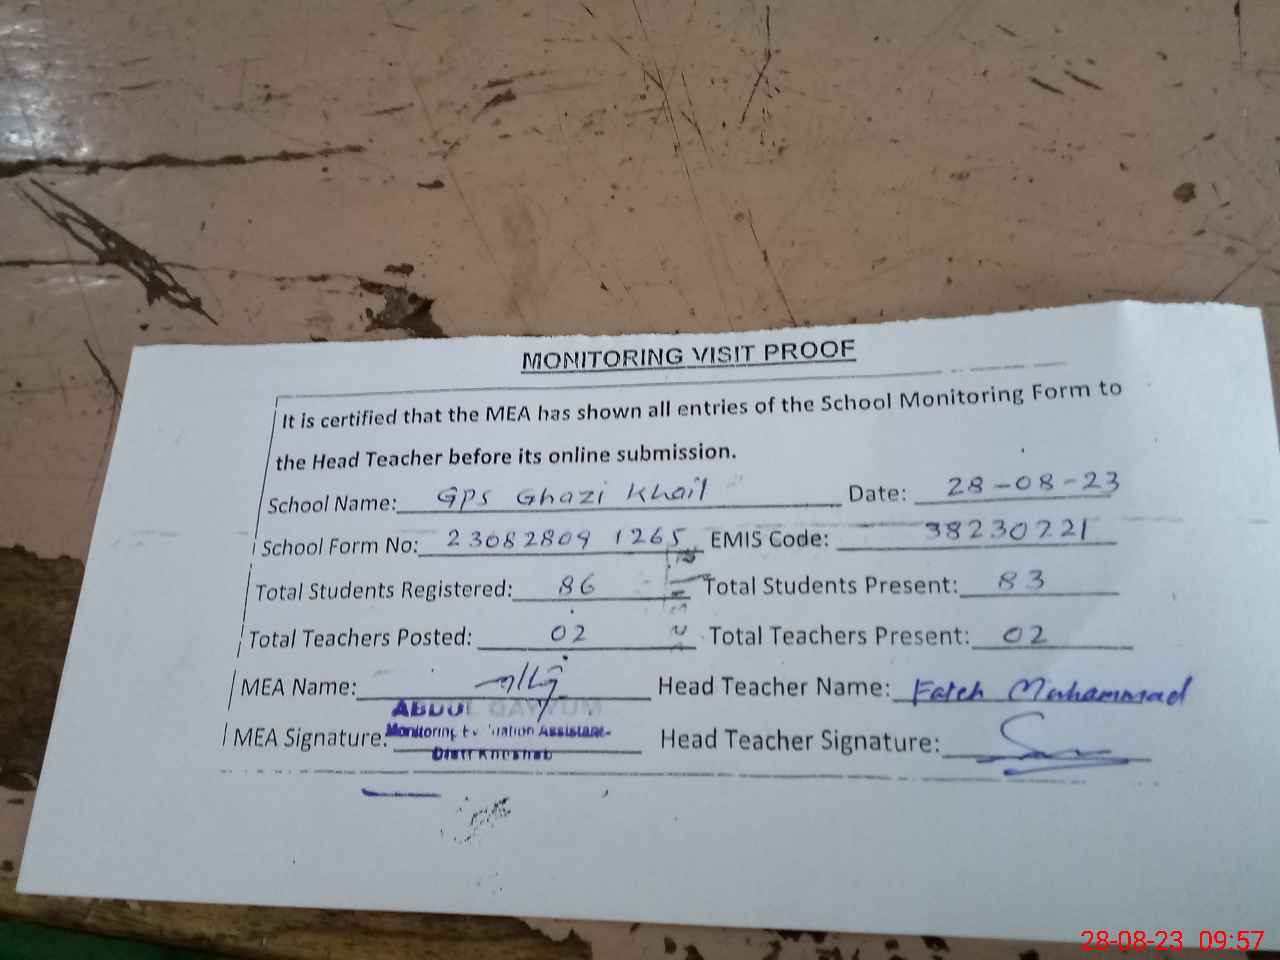 MONITORING VISIT PROOF
It is certified that the MEA has shown all entries of the School Monitoring Form to
the Head Teacher before its online submission.
School Name: GPS Ghazi Khail Date: 28-08-23
School Form No: 23082809 1265 EMIS Code: 38230221
Total Students Registered: 86 Total Students Present: 83
Total Teachers Posted: 02 Total Teachers Present: 02
MEA Name: Head Teacher Name: Fateh Muhammad
ABDUL QAYYUM
MEA Signature: Monitoring Assistant Head Teacher Signature:
Distt Khushab
28-08-23 09:57